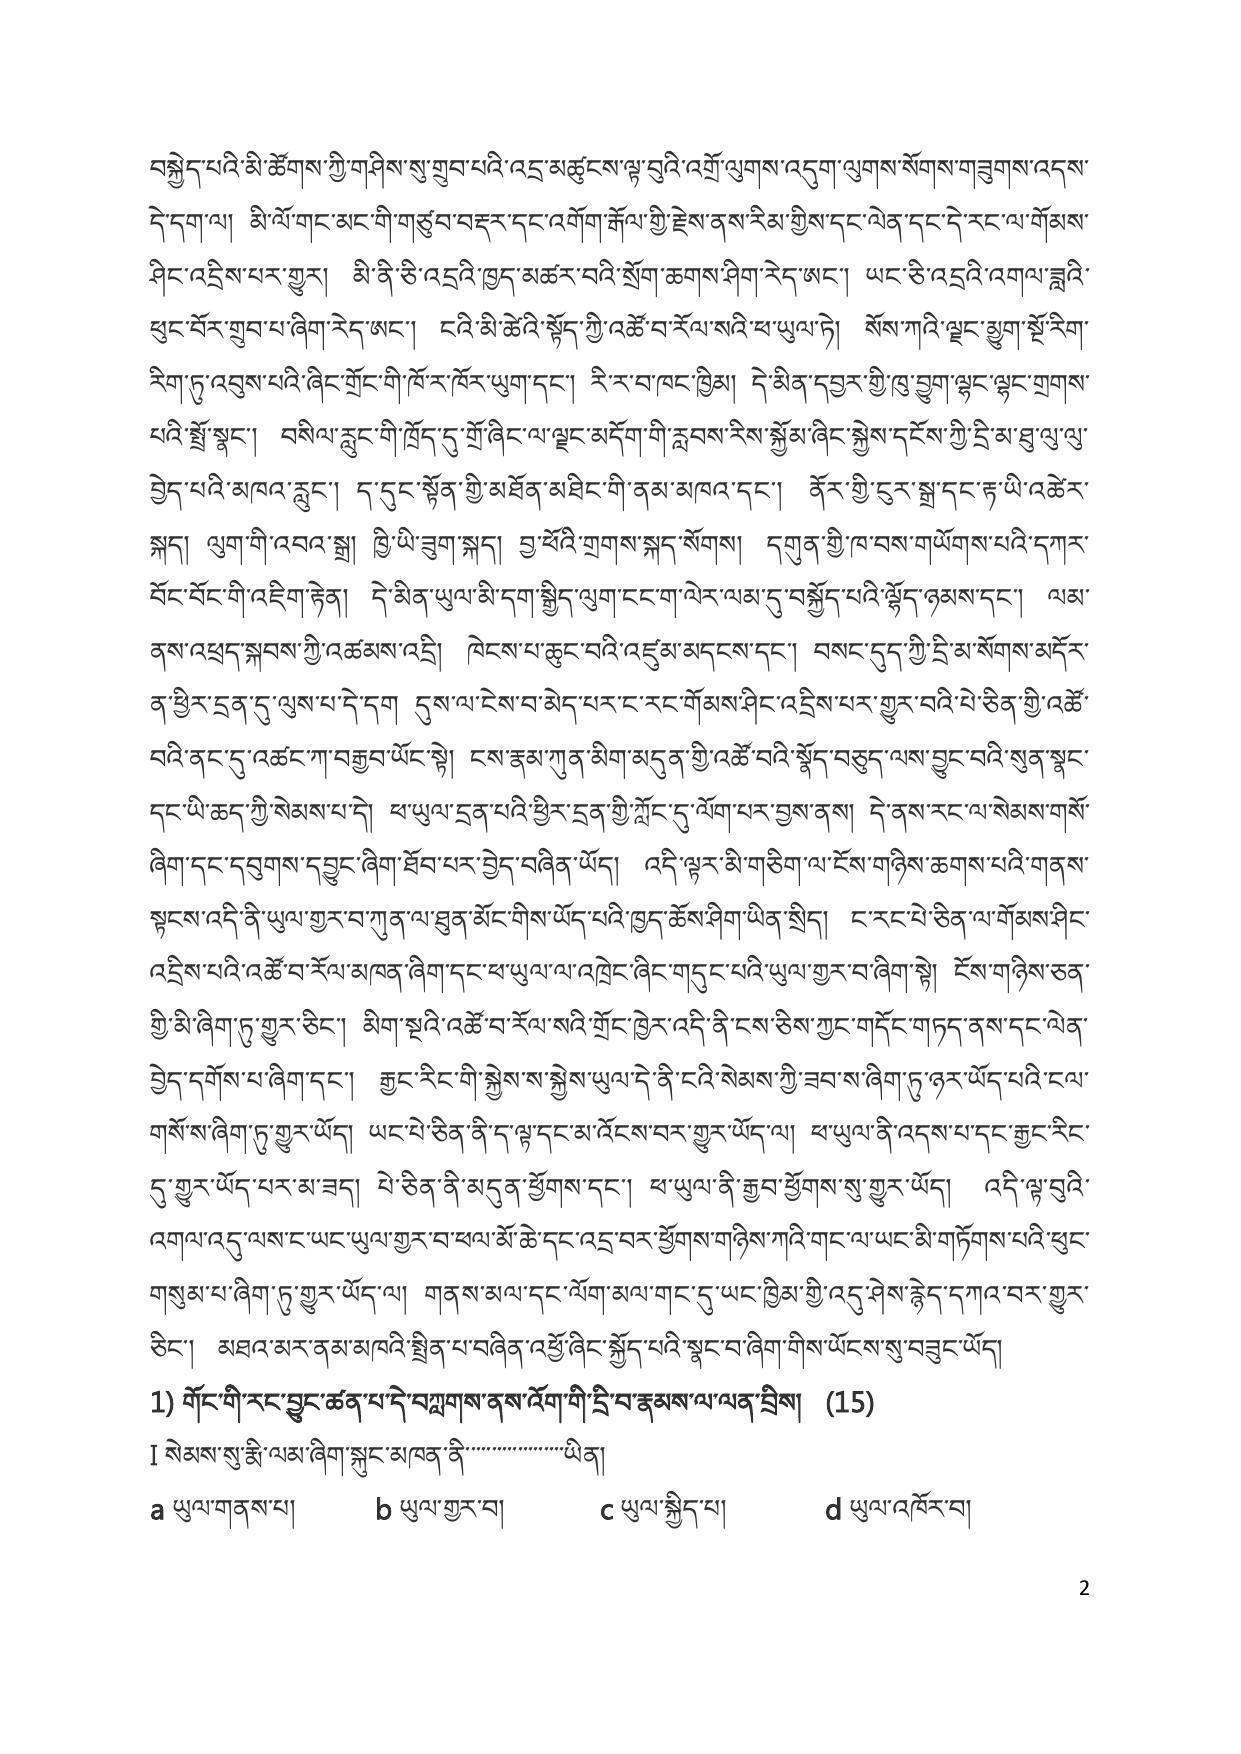 བསྐྱེད་པའི་མི་ཚོགས་ཀྱི་གཤིས་སུ་གྲུབ་པའི་འདྲ་མཚུངས་ལྟ་བུའི་འགྲོ་ལུགས་འདུག་ལུགས་སོགས་གཟུགས་འདས་
དེ་དག་ལ། མི་ལོ་གང་མང་གི་གཙུབ་བརྡར་དང་འགོག་རྒོལ་གྱི་རྗེས་ནས་རིམ་གྱིས་དང་ལེན་དང་དེ་རང་ལ་གོམས་
ཤིང་འདྲིས་པར་གྱུར། མི་ནི་ཅི་འདྲའི་ཁྱད་མཚར་བའི་སྲོག་ཆགས་ཤིག་རེད་ཨང་། ཡང་ཅི་འདྲའི་འགལ་ཟླའི་
ཕུང་བོར་གྲུབ་པ་ཞིག་རེད་ཨང་། ངའི་མི་ཚེའི་སྟོད་ཀྱི་འཚོ་བ་རོལ་སའི་ཕ་ཡུལ་ཏེ། སོས་ཀའི་ལྗང་མྱུག་སྔོ་རིག་
རིག་ཏུ་འབུས་པའི་ཞིང་གྲོང་གི་ཁོ་ར་ཁོར་ཡུག་དང་། རི་ར་བ་ཁང་ཁྱིམ། དེ་མིན་དབྱར་གྱི་ཁུ་བྱུག་ལྷང་ལྷང་གྲགས་
པའི་སྤྲོ་སྣང་། བསིལ་རླུང་གི་ཁྲོད་དུ་གྲོ་ཞིང་ལ་ལྗང་མདོག་གི་རླབས་རིས་སྐྱོམ་ཞིང་སྐྱེས་དངོས་ཀྱི་དྲི་མ་ཐུ་ལུ་ལུ་
བྱེད་པའི་མཁའ་རླུང་། ད་དུང་སྟོན་གྱི་མཐོན་མཐིང་གི་ནམ་མཁའ་དང་། ནོར་གྱི་ངུར་སྒྲ་དང་རྟ་ཡི་འཚེར་
སྐད། ལུག་གི་འབའ་སྒྲ། ཁྱི་ཡི་ཟུག་སྐད། བྱ་ཕོའི་གྲགས་སྐད་སོགས། དགུན་གྱི་ཁ་བས་གཡོགས་པའི་དཀར་
བོང་བོང་གི་འཇིག་རྟེན། དེ་མིན་ཡུལ་མི་དག་སྒྱིད་ལུག་ངང་ག་ལེར་ལམ་དུ་བསྐྱོད་པའི་ལྷོད་ཉམས་དང་། ལམ་
ནས་འཕྲད་སྐབས་ཀྱི་འཚམས་འདྲི། ཁེངས་པ་ཆུང་བའི་འཛུམ་མདངས་དང་། བསང་དུད་ཀྱི་དྲི་མ་སོགས་མདོར་
ན་ཕྱིར་དྲན་དུ་ལུས་པ་དེ་དག དུས་ལ་ངེས་བ་མེད་པར་ང་རང་གོམས་ཤིང་འདྲིས་པར་གྱུར་བའི་པེ་ཅིན་གྱི་འཚོ་
བའི་ནང་དུ་འཚང་ཀ་བརྒྱབ་ཡོང་སྟེ། ངས་རྣམ་ཀུན་མིག་མདུན་གྱི་འཚོ་བའི་སྣོད་བཅུད་ལས་བྱུང་བའི་སུན་སྣང་
དང་ཡི་ཆད་ཀྱི་སེམས་པ་དེ། ཕ་ཡུལ་དྲན་པའི་ཕྱིར་དྲན་གྱི་ཀློང་དུ་ལོག་པར་བྱས་ནས། དེ་ནས་རང་ལ་སེམས་གསོ་
ཞིག་དང་དབུགས་དབྱུང་ཞིག་ཐོབ་པར་བྱེད་བཞིན་ཡོད། འདི་ལྟར་མི་གཅིག་ལ་ངོས་གཉིས་ཆགས་པའི་གནས་
སྟངས་འདི་ནི་ཡུལ་གྱར་བ་ཀུན་ལ་ཐུན་མོང་གིས་ཡོད་པའི་ཁྱད་ཆོས་ཤིག་ཡིན་སྲིད། ང་རང་པེ་ཅིན་ལ་གོམས་ཤིང་
འདྲིས་པའི་འཚོ་བ་རོལ་མཁན་ཞིག་དང་ཕ་ཡུལ་ལ་འཁྲེང་ཞིང་གདུང་པའི་ཡུལ་གྱར་བ་ཞིག་སྟེ། ངོས་གཉིས་ཅན་
གྱི་མི་ཞིག་ཏུ་གྱུར་ཅིང་། མིག་སྔའི་འཚོ་བ་རོལ་སའི་གྲོང་ཁྱེར་འདི་ནི་ངས་ཅིས་ཀྱང་གདོང་གཏད་ནས་དང་ལེན་
བྱེད་དགོས་པ་ཞིག་དང་། རྒྱང་རིང་གི་སྐྱེས་ས་སྐྱེས་ཡུལ་དེ་ནི་ངའི་སེམས་ཀྱི་ཟབ་ས་ཞིག་ཏུ་ཉར་ཡོད་པའི་ངལ་
གསོ་ས་ཞིག་ཏུ་གྱུར་ཡོད། ཡང་པེ་ཅིན་ནི་ད་ལྟ་དང་མ་འོངས་བར་གྱུར་ཡོད་ལ། ཕ་ཡུལ་ནི་འདས་པ་དང་རྒྱང་རིང་
དུ་གྱུར་ཡོད་པར་མ་ཟད། པེ་ཅིན་ནི་མདུན་ཕྱོགས་དང་། ཕ་ཡུལ་ནི་རྒྱབ་ཕྱོགས་སུ་གྱུར་ཡོད། འདི་ལྟ་བུའི་
འགལ་འདུ་ལས་ང་ཡང་ཡུལ་གྱར་བ་ཕལ་མོ་ཆེ་དང་འདྲ་བར་ཕྱོགས་གཉིས་ཀའི་གང་ལ་ཡང་མི་གཏོགས་པའི་ཕུང་
གསུམ་པ་ཞིག་ཏུ་གྱུར་ཡོད་ལ། གནས་མལ་དང་ལོག་མལ་གང་དུ་ཡང་ཁྱིམ་གྱི་འདུ་ཤེས་རྙེད་དཀའ་བར་གྱུར་
ཅིང་། མཐའ་མར་ནམ་མཁའི་སྤྲིན་པ་བཞིན་འཕྱོ་ཞིང་སྐྱོད་པའི་སྣང་བ་ཞིག་གིས་ཡོངས་སུ་བཟུང་ཡོད།
1) གོང་གི་རང་བྱུང་ཚན་པ་དེ་བཀླགས་ནས་འོག་གི་དྲི་བ་རྣམས་ལ་ལན་བྲིས། (15)
I སེམས་སུ་རྨི་ལམ་ཞིག་སྐྲུང་མཁན་ནི་་་་་་་་་་་་་་་་་་ཡིན།
a ཡུལ་གནས་པ། b ཡུལ་གྱར་བ། c ཡུལ་སྐྱིད་པ། d ཡུལ་འཁོར་བ།
2